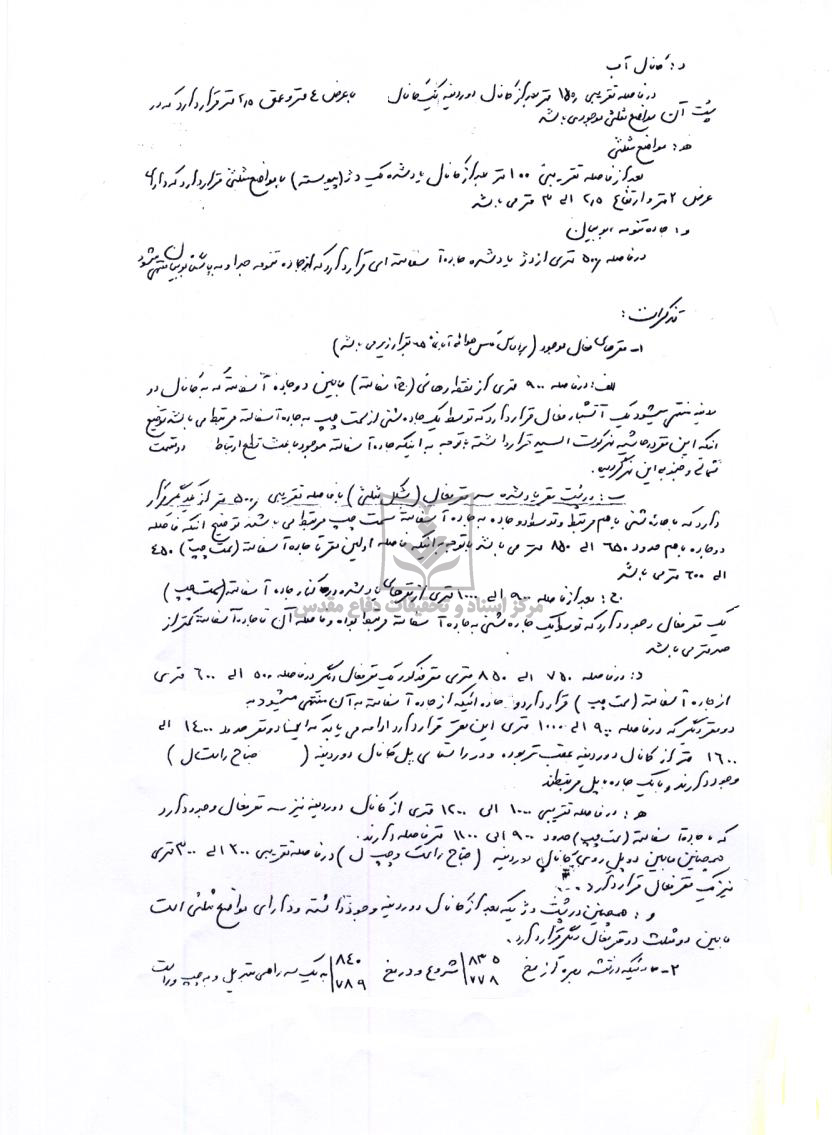 د: کانال آب
در فاصله تقریبی ۱۵۰ متر بعد از کانال دوردینیه یک کانال با عرض ٤ متر و عمق ۲/۵ متر قرار دارد که در
پشت آن مواضع مثلثی موجود می باشد
هـ: مواضع مثلثی
بعد از فاصله تقریبی ۱۰۰ متر بعد از کانال یاد شده یک دژ (پیوسته) با مواضع مثلثی قرار دارد که دارای
عرض ۲ متر و ارتفاع ۲/۵ الی ۳ متر می باشد
و: جاده تنومه، بوبیان
در فاصله ۵۰۰ متری از دژ یاد شده جاده آسفالته ای قرار دارد که از جاده تنومه جدا و به پاسگاه بوبیان منتهی میشود
تذکرات:
۱- مقرهای فعال موجود (براساس عکس هوائی آبانماه ۶۵ بقرار زیر می باشد)
الف: در فاصله ۹۰۰ متری از نقطه رهائی (ج آسفالته) مابین دو جاده آسفالته که به کانال دو
منتهی میشود یک آتشبار فعال قرار دارد که توسط یک جاده شنی از سمت چپ به جاده آسفالته مرتبط می باشد توضیح
آنکه این مقر در حاشیه نهر کوت السید قرار داشته با توجه به اینکه جاده آسفالته موجود باعث قطع ارتباط دو قسمت
شمالی و جنوبی این نهر گردیده.
ب: در پشت مقر یاد شده سه مقر فعال (بشکل مثلثی) با فاصله تقریبی ۵۰۰ متر از یکدیگر قرار
دارد که با جاده شنی باهم مرتبط و توسط دو جاده به جاده آسفالته سمت چپ مرتبط می باشند توضیح آنکه فاصله
دو جاده باهم حدود ٦۵۰ الی ۸۵۰ متر می باشد با توجه به اینکه فاصله اولین مقر تا جاده آسفالته (سمت چپ) ٤۵۰
الی ٦۰۰ متر می باشد
ج: بعد از فاصله ۹۰۰ الی ۱۰۰۰ متری از مقرهای یاد شده در کنار جاده آسفالته (سمت چپ)
یک مقر فعال وجود دارد که توسط یک جاده شنی به جاده آسفالته مرتبط بوده و فاصله آن تا جاده آسفالته کمتر از
صد متر می باشد
مرکز اسناد و تحقیقات دفاع مقدس
د: در فاصله ۷۵۰ الی ۸۵۰ متری مقر مذکور یک مقر فعال دیگر در فاصله ۵۰۰ الی ٦۰۰ متری
از جاده آسفالته (سمت چپ) قرار دارد و جاده ایکه از جاده آسفالته به آن منتهی میشود به
دو مقر دیگر که در فاصله ۹۰۰ الی ۱۰۰۰ متری این مقر قرار دارد ادامه می یابد که اینها دو مقر حدود ۱٤۰۰ الی
۱٦۰۰ متر از کانال دوردینیه عقب تر بوده و در راستای پل کانال دوردینیه (جناح راست ل)
وجود دارند و با یک جاده با پل مرتبطند
هـ: در فاصله تقریبی ۱۰۰۰ الی ۱۲۰۰ متری از کانال دوردینیه نیز سه مقر فعال وجود دارد
که با جاده آسفالته (سمت چپ) حدود ۹۰۰ الی ۱۱۰۰ متر فاصله دارند.
همچنین مابین دو پل روی کانال دوردینیه (جناح راست و چپ ل) در فاصله تقریبی ۲۰۰ الی ۳۰۰ متری
نیز یک مقر فعال قرار دارد.
و: همچنین در پشت دژیکه بعد از کانال دوردینیه وجود داشته و دارای مواضع مثلثی است
مابین دو مثلث دو مقر فعال دیگر قرار دارد.
۲- جاده ایکه در نقشه بصره از مخ ۸۳۵/۷۷۸ شروع و در مخ ۸٤۰/۷۸۹ به یک سه راهی تبدیل و به چپ و راست